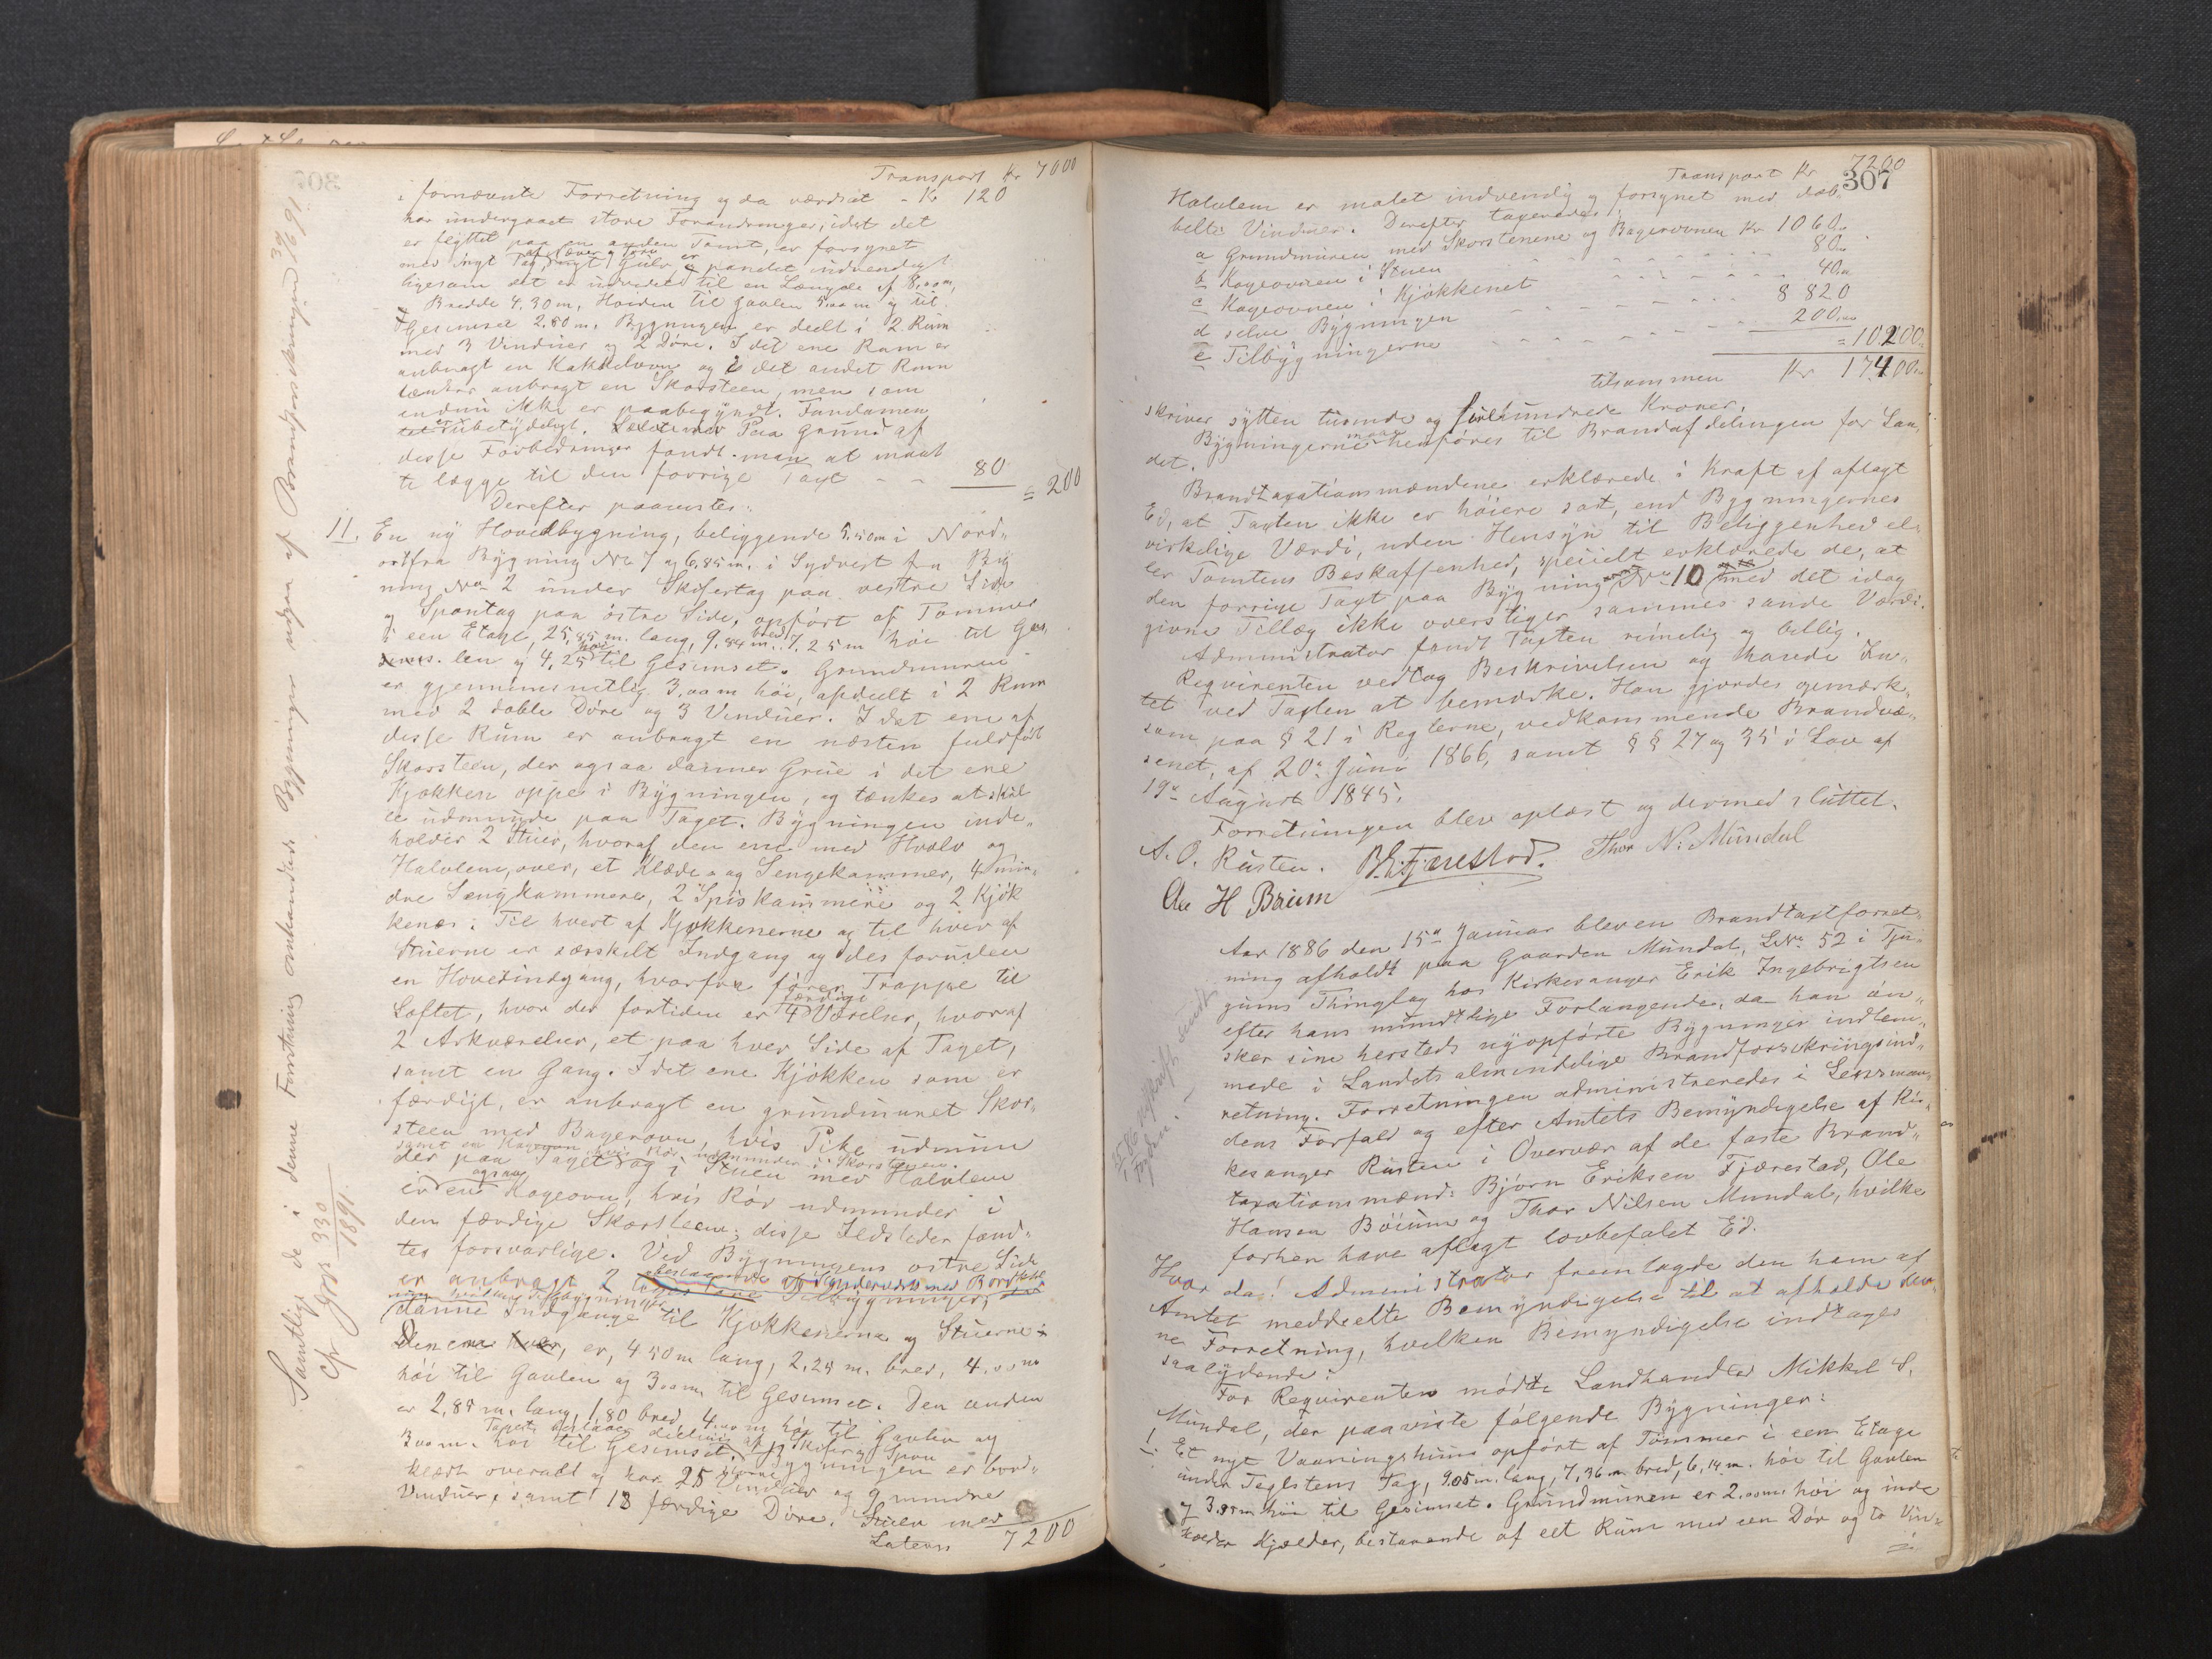 Transport Kr 7000
i fornævnte Forretning og da værdsat - Kr 120
har undergaaet store Forandringer, idet det
er flyttet paa en anden Tomt, er forsynet
med nyt Tag, nyt Gulv, er pandet indvendigt
ligesom det er udvidet til en Længde af 8,00m,
Bredde 4,30m, Høiden til Gavlen 5,00 m og til
Gesimset 2.80 m. Bygningen er deelt i 2 Rum
med 3 Vinduer og 2 Døre. I det ene Rum er
anbragt en Kakkelovn og i det andet Rum
tænkes anbragt en Skorsteen, men som
endnu ikke er paabegyndt. Fundamen
tet er ubetydeligt. Paa Grund af
disse Forbedringer fandt man at maat
te lægge til den forrige Taxt - - 80
= 200
Derefter paavistes:
11. En ny Hovedbygning, beliggende 5.50m i Nord-
ost fra Bygning No 7 og 6,85 m. i Sydvest fra Byg
ning No 2 under Skifertag paa vestre Side
og Spontag paa østre Side, opført af Tømmer
i een Etage, 25,85 m. lang, 9,84 m. bred, 7,25 m høi til Gav,
len og 4,25 høi til Gesimset. Grundmuren
er gjennemsnitlig 3,00 m høi, afdeelt i 2 Rum
med 2 doble Døre og 3 Vinduer. I det ene af
disse Rum er anbragt en næsten fuldført
Skorsteen, der ogsaa danner Grue i det ene
Kjøkken oppe i Bygningen, og tænkes at skul
le udmunde paa Taget. Bygningen inde-
holder 2 Stuer, hvoraf den ene med Hvælv og
Halvlem over, et Klæde- og Sengekammer, 4 min-
dre Sengkammere, 2 Spiskammere og 2 Kjøk
kener. Til hvert af Kjøkkenerne og til hver af
Stuerne er særskilt Indgang og des foruden
en Hovedindgang, hvorfra fører Trappe til
Loftet, hvor der fortiden er 4 færdige Værelser, hvoraf
2 Arkværelser, et paa hver Side af Taget,
samt en Gang. I det ene Kjøkken som er
færdigt, er anbragt en grundmuret Skor-
steen med Bagerovn, hvis Pibe udmun
der paa Taget samt en Kogeovn hvis Rør udmunder i Skorstenen. og i Stuen med Halvlem
er ogsaa en Kogeovn, hvis Rør udmunder i
den færdige Skorsteen; disse Ildsteder fand-
tes forsvarlige. Ved Bygningens østre Side
er anbragt 2 Tilbygninger,
danne Indgange til Kjøkkenerne og Stuerne
Den ene, er, 4.50 m lang, 2,25 m. bred, 4,00 m
høi til Gavlen og 3,00 m. til Gesimset. Den anden
er 2,85 m. lang, 1,80 bred, 4,00 m høi til Gavlen og
3,00 m. høi til Gesimset. Bygningen er bord-
klædt overalt og har 25 større Vinduer og 9 mindre
Vinduer, samt 13 færdige Døre. Stuen med
Lateris 7200
Samtlige de i denne Forretning omhandlede Bygninger udgaar af Brandforsikringen 30/6 91.
cfr Jour 330/1891.
307
Transport Kr 7200
Halvlem er malet indvendig og forsynet med dob-
belte Vinduer. Derefter taxeredes
a Grundmuren med Skorstenene og Bagerovnen Kr 1060,00
b Kogeovnen i Stuen 80,00
c Kogeovnen i Kjøkkenet 40,00
d selve Bygningen 8 820
e Tilbygningerne 200,00
= 10,200,00
tilsammen Kr 17400,00
skriver sytten tusinde og firehundrede Kroner.
Bygningerne maa henføres til Brandafdelingen for Lan,
det.
Brandtaxationsmændene erklærede i Kraft af aflagt
Ed, at Taxten ikke er høiere sat, end Bygningernes
virkelige Værdi, uden Hensyn til Beliggenhed el-
ler Tomtens Beskaffenhed, specielt erklærede de, at
den forrige Taxt paa Bygning No 10 med det idag
givne Tillæg ikke overstiger sammes sande Værdi.
Administrator fandt Taxten rimelig og billig.
Reqvirenten vedtog Beskrivelsen og havde In-
tet ved Taxten at bemærke. Han gjordes opmærk-
som paa § 21 i Reglerne, vedkommende Brandvæ-
senet, af 20de Juni 1866, samt §§ 27 og 35 i Lov af
19de August 1845.
Forretningen blev oplæst og dermed sluttet.
A. O. Rusten. B. E. Fjærestad. Thor N. Mundal
Ole H Bøium
Aar 1886 den 15de Januar blev en Brandtaxtforret-
ning afholdt paa Gaarden Mundal, LNo 52 i Tju-
gums Thinglag hos Kirkesanger Erik Ingebrigtsen
efter hans mundtlige Forlangende, da han øn-
sker sine hersteds nyopførte Bygninger indlem-
mede i Landets almindelige Brandforsikringsind-
retning. Forretningen administreredes i Lensman-
dens Forfald og efter Amtets Bemyndigelse af Kir-
kesanger Rusten i Overvær af de faste Brand-
taxationsmænd: Bjørn Eriksen Fjærestad, Ole
Hansen Bøium og Thor Nilsen Mundal, hvilke
forhen have aflagt lovbefalet Ed.
Hvor da! Administrator fremlagde den ham af
Amtet meddeelte Bemyndigelse til at afholde den-
ne Forretning, hvilken Bemyndigelse indtages
saalydende:
For Reqvirenten mødte Landhandler Mikkel S.
Mundal, der paaviste følgende Bygninger:
1. Et nyt Vaaningshuus opført af Tømmer i een Etage
under Teglstens Tag, 9.05 m. lang, 7,36 m bred, 6,14 m. høi til Gavlen
og 3.95 m høi til Gesimset. Grundmuren er 2.00 m. høi og inde
holder Kjælder, bestaaende af eet Rum med een Dør og to Vin-